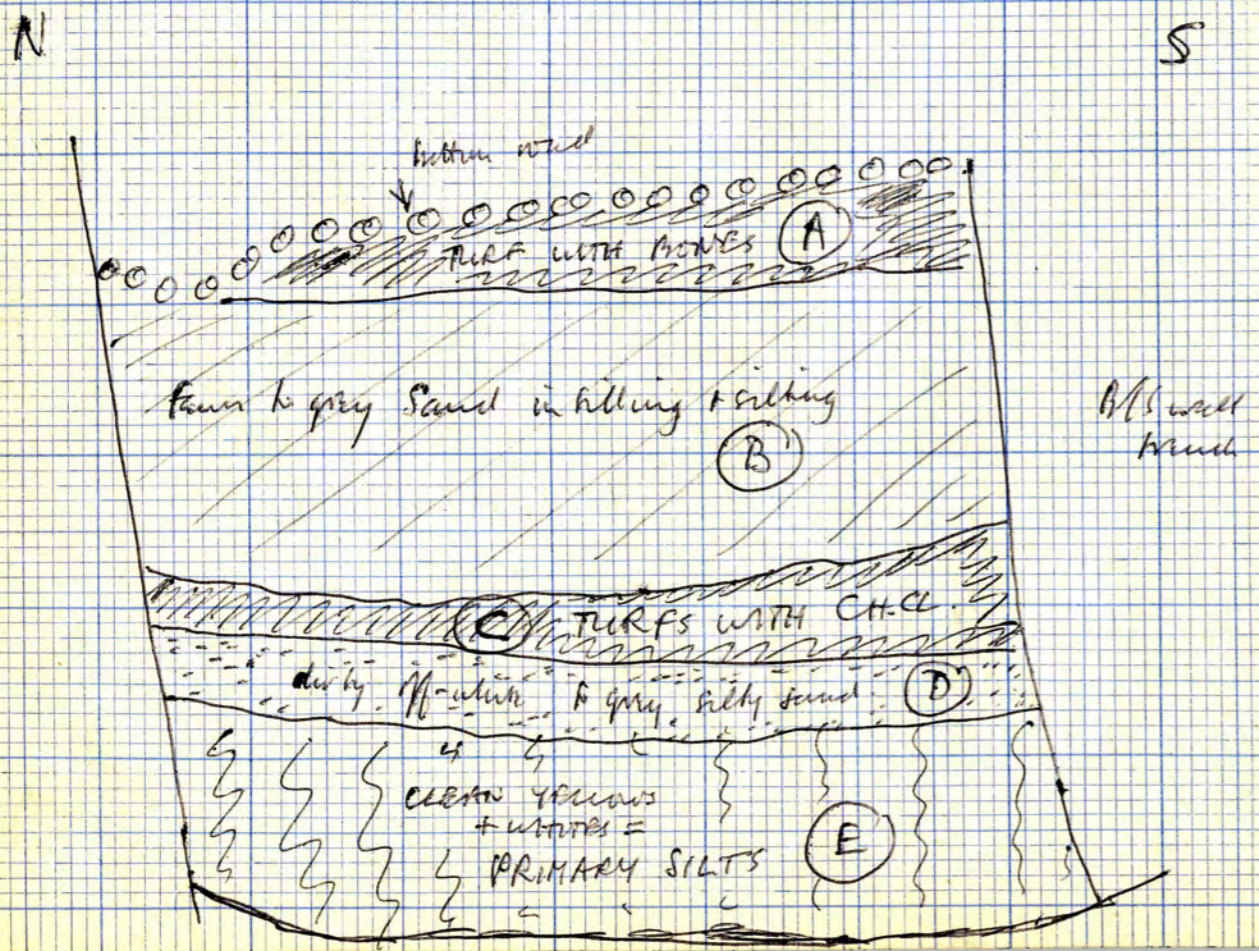 N
S
bottom
TURF WITH BONES
A
Fawn to grey Sand infilling + silting
B
B/S wall
trench
C
TURFS WITH CH.CL.
dirty off-white to grey silty sand
D
CLEAN YELLOWS
+ WHITES =
PRIMARY SILTS
E